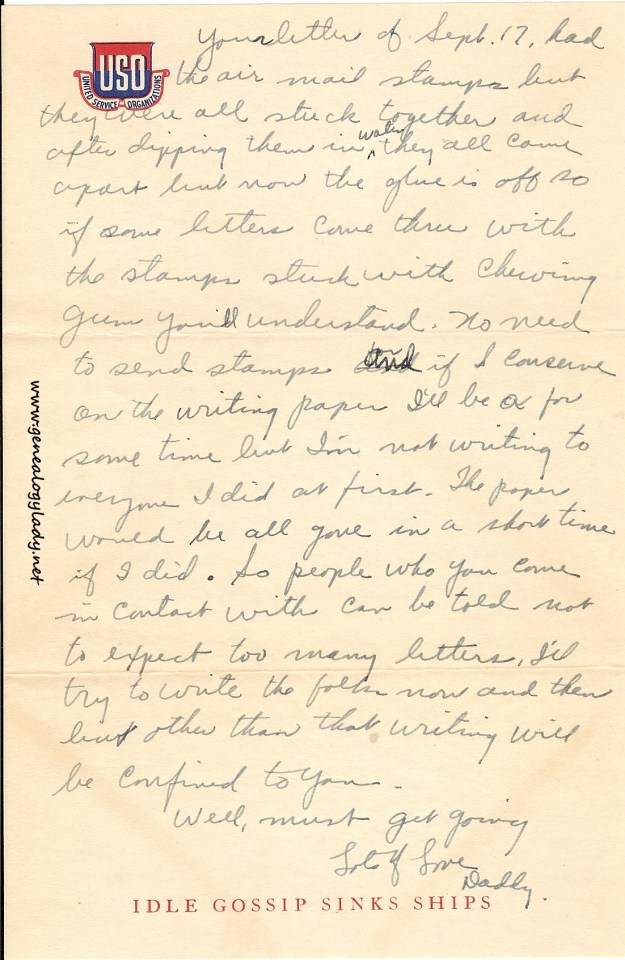 Your letter of Sept. 17, had
USO
UNITED SERVICE ORGANIZATIONS
the air mail stamps but
they were all stuck together and
water
after dipping them in ^ they all came
apart but now the glue is off so
if some letters come thru with
the stamps stuck with chewing
gum you'll understand. No need
to send stamps and if I conserve
on the writing paper I'll be OK for
some time but I'm not writing to
everyone I did at first. The paper
would be all gone in a short time
if I did. So people who you come
in contact with can be told not
to expect too many letters. I'll
try to write the folks now and then
but other than that writing will
be confined to you.
Well, must get going
Lots of Love
Daddy.
IDLE GOSSIP SINKS SHIPS
www.genealogylady.net